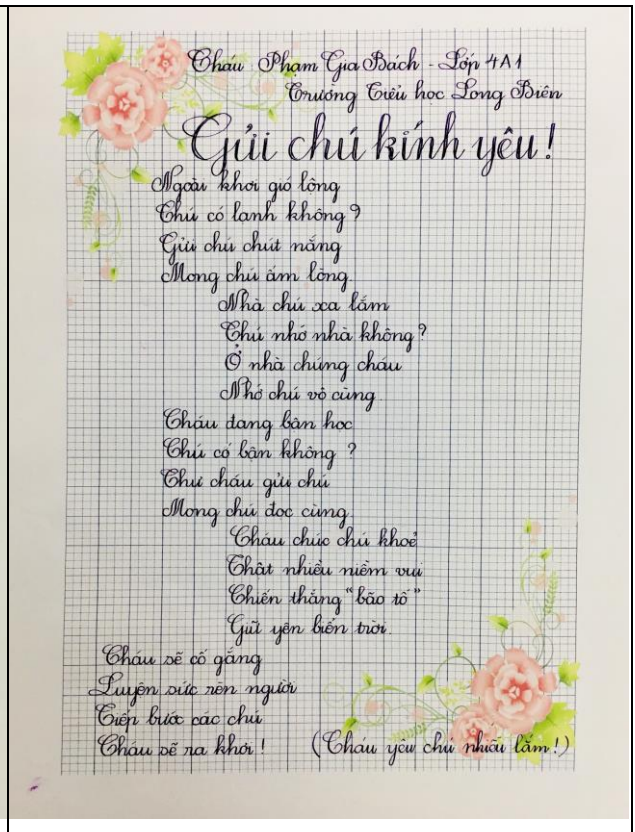 Cháu Phạm Gia Bách - Lớp 4A1
Trường Tiểu học Long Biên
Gửi chú kính yêu!
Ngoài khơi gió lộng
Chú có lạnh không?
Gửi chú chút nắng
Mong chú ấm lòng.
Nhà chú xa lắm
Chú nhớ nhà không?
Ở nhà chúng cháu
Nhớ chú vô cùng.
Cháu đang bận học
Chú có bận không ?
Thư cháu gửi chú
Mong chú đọc cùng.
Cháu chúc chú khoẻ
Thật nhiều niềm vui
Chiến thắng "bão tố"
Giữ yên biển trời.
Cháu sẽ cố gắng
Luyện sức rèn người
Tiếp bước các chú
Cháu sẽ ra khơi ! (Cháu yêu chú nhiều lắm!)